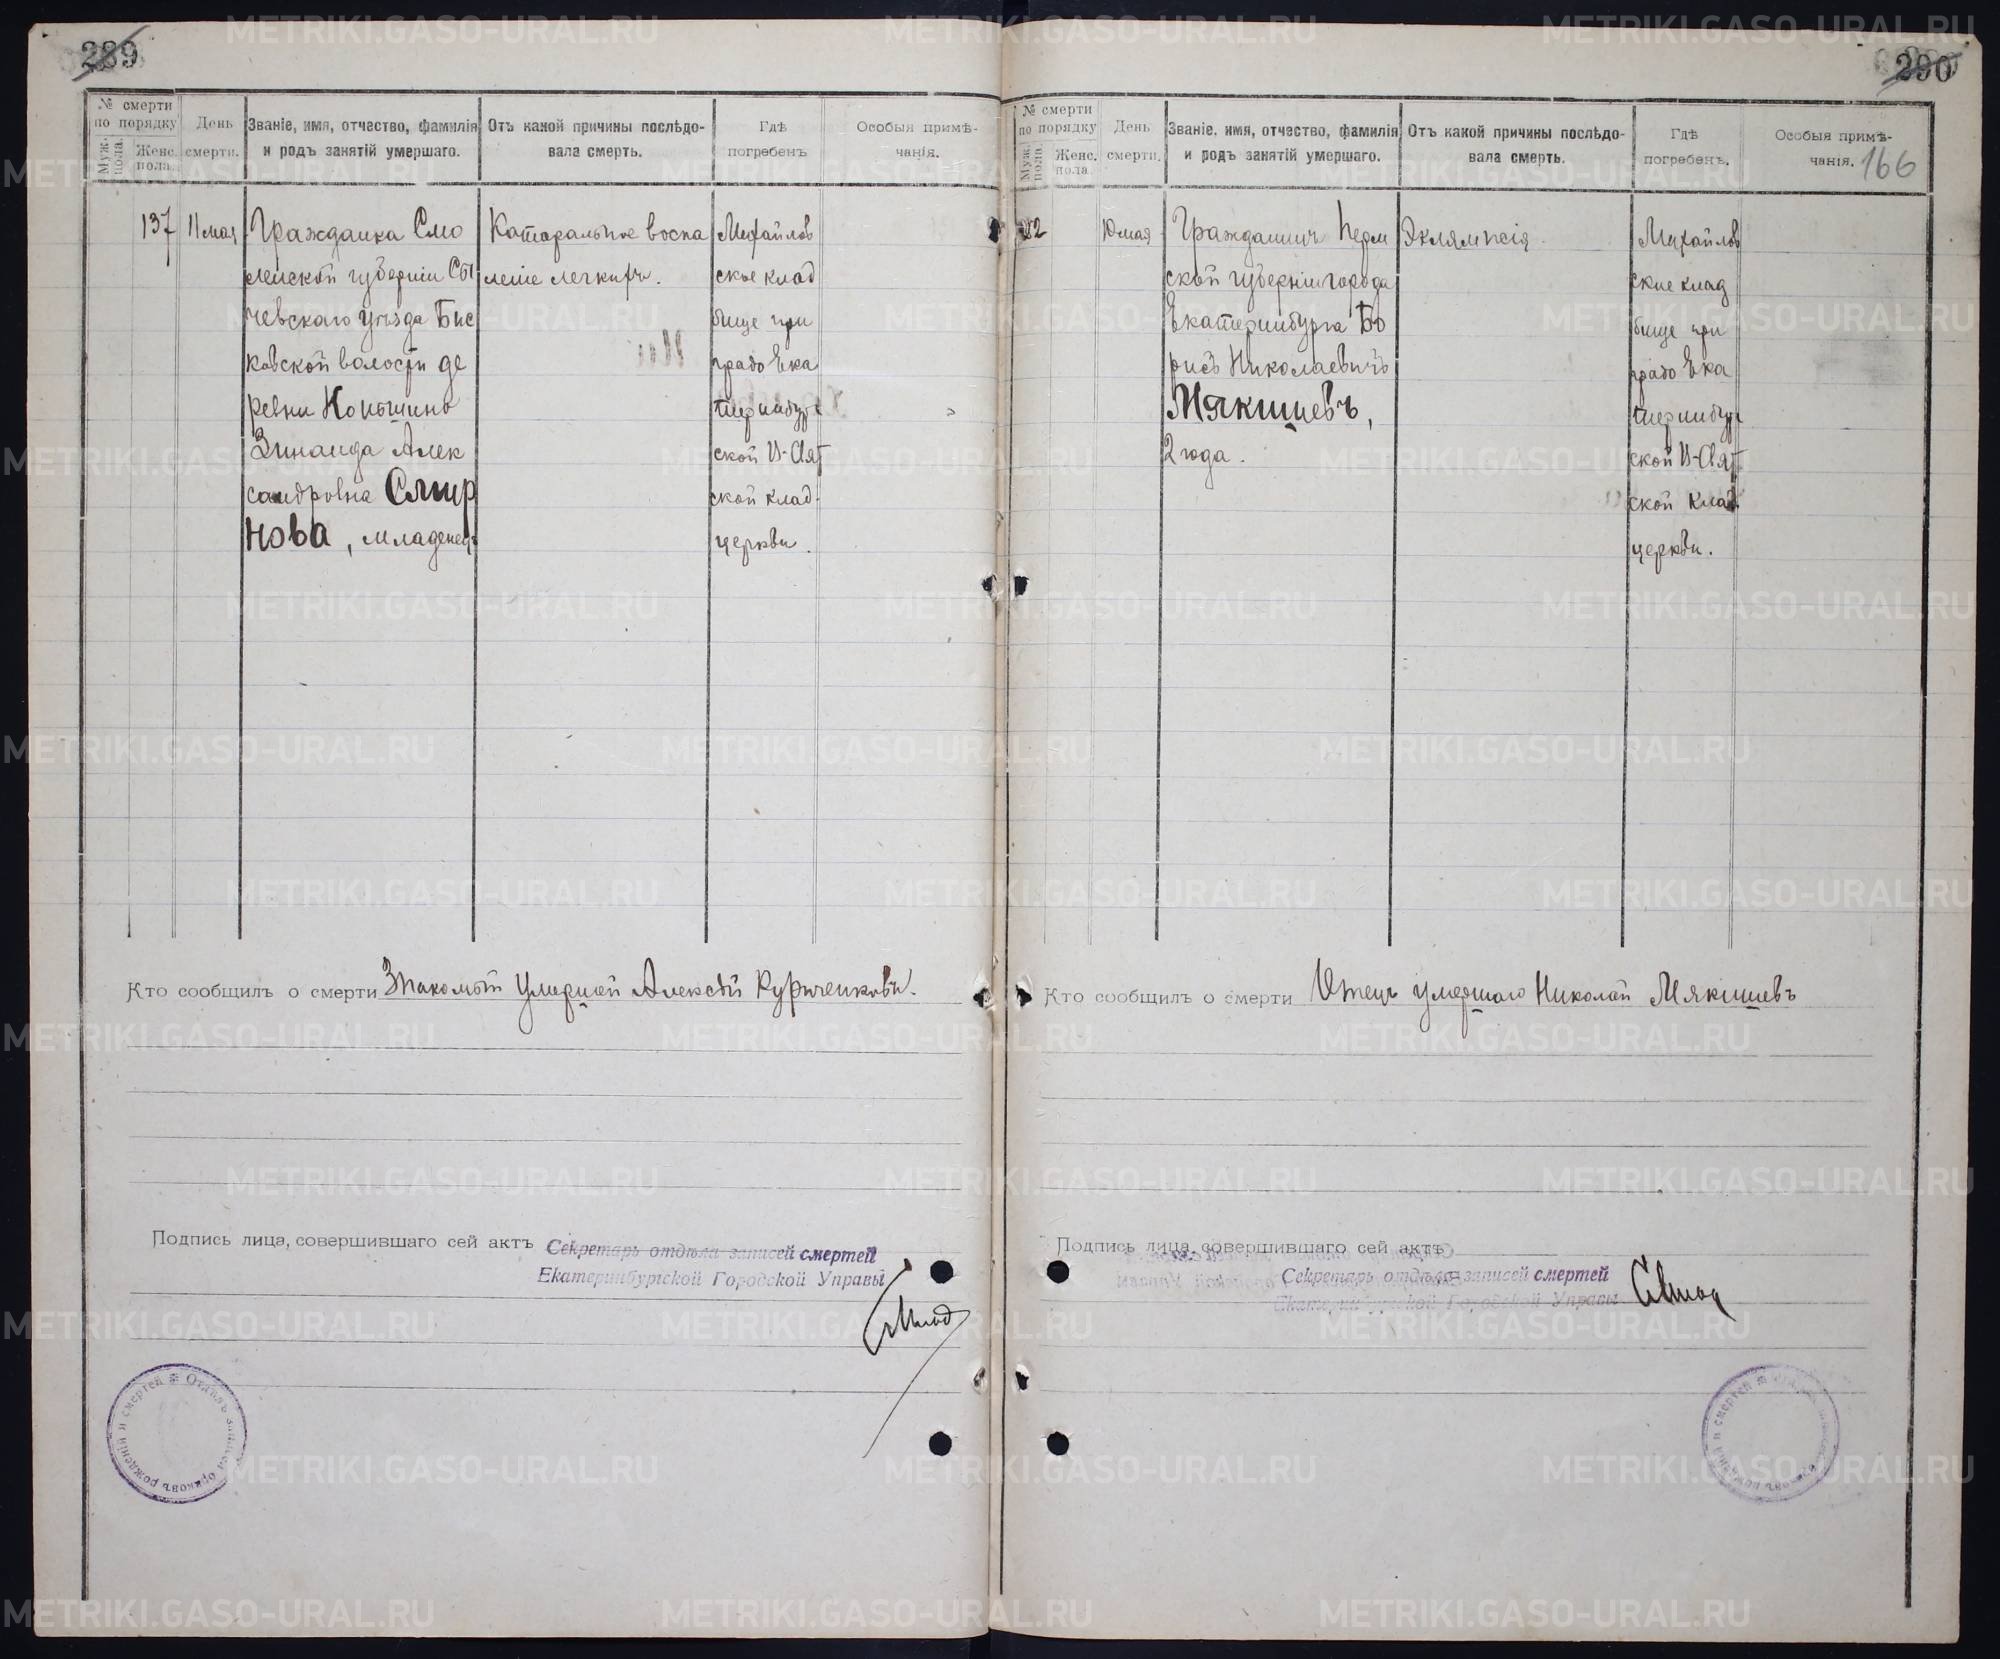 289
№ смерти
по порядку
Муж. пола.
Женс. пола.
День смерти.
Званіе, имя, отчество, фамилія
и родъ занятій умершаго.
Отъ какой причины послѣдо-
вала смерть.
Гдѣ
погребенъ
Особыя примѣ-
чанія.
137
11 мая
Гражданка Смо
ленской губерніи Сы
чевскаго уѣзда Бис
ковской волости де
ревни
Зинаида Алек
сандровна Смир
нова, младенец
Катаральное воспа
леніе легкихъ.
Михайлов
ское клад
бище при
градо Ека
теринбург
ской В-Свят
ской клад.
церкви.
Кто сообщилъ о смерти Знакомый умершей Алексѣй
Подпись лица, совершившаго сей актъ Секретарь отдѣла записей смертей
Екатеринбургской Городской Управы
Отдѣлъ записей браковъ рожденій и смертей
290
166
№ смерти
по порядку
Муж. пола.
Женс. пола.
День
смерти.
Званіе, имя, отчество, фамилія
и родъ занятій умершаго.
Отъ какой причины послѣдо-
вала смерть.
Гдѣ
погребенъ.
Особыя примѣ-
чанія.
10 мая
Гражданинъ Перм
ской губерніи города
Екатеринбурга Бо
рисъ Николаевичъ
Мякишевъ,
2 года.
Эклямпсія.
Михайлов
ское клад
бище при
градо Ека
теринбург
ской В-Свят
ской клад.
церкви.
Кто сообщилъ о смерти Отецъ умершаго Николай Мякишевъ
Подпись лица, совершившаго сей актъ
Секретарь отдѣла записей смертей
Екатеринбургской Городской Управы
METRIKI.GASO-URAL.RU